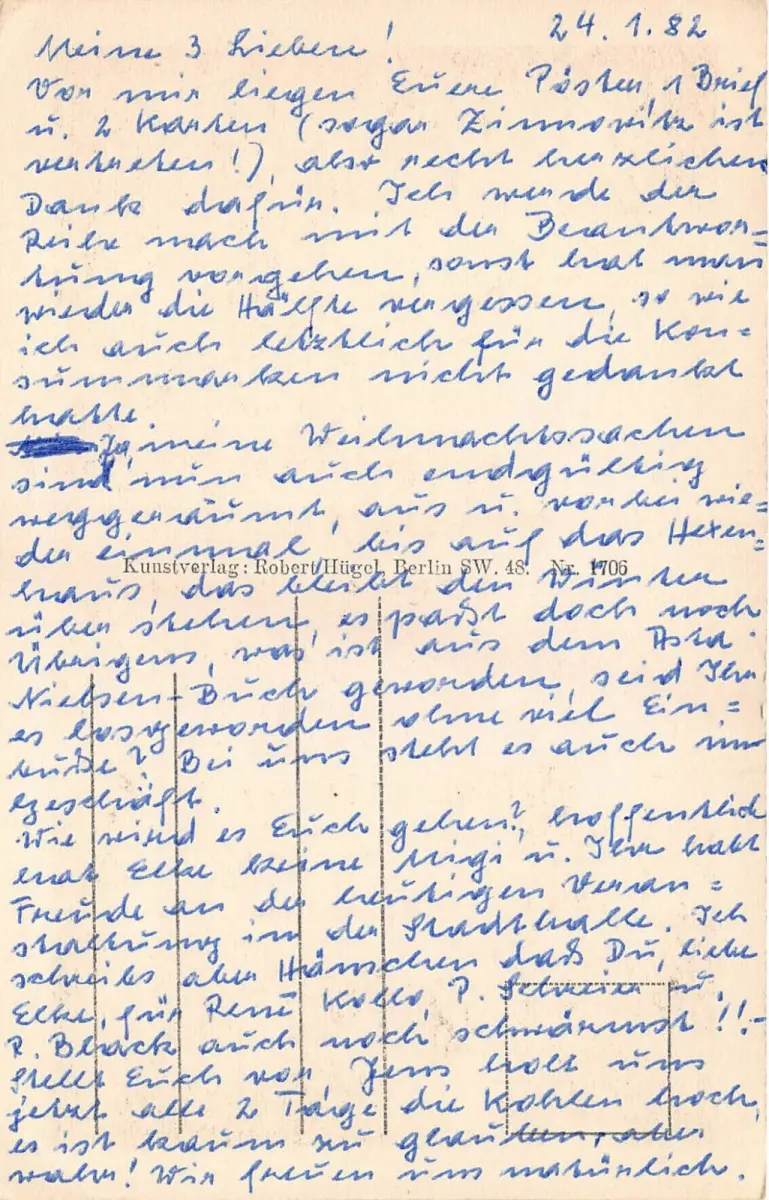 24. 1. 82
Meine 3 Lieben!
Vor mir liegen Euere Posten, 1 Brief
u. 2 Karten (sogar Zinnowitz ist
vertreten!), also recht herzlichen
Dank dafür. Ich werde der
Reihe nach mit der Beantwor=
tung vorgehen, sonst hat man
wieder die Hälfte vergessen, so wie
ich auch letztlich für die Kon=
summarken nicht gedankt
hatte.
Ja, meine Weihnachtssachen
sind nun auch endgültig
weggeräumt, aus u. vorbei wie=
der einmal, bis auf das Hexen=
Kunstverlag: Robert Hügel, Berlin SW. 48. Nr. 1706
haus, das bleibt den Winter
über stehen, es paßt doch noch
Übrigens, was ist aus dem Asta
Nielsen-Buch geworden, seid Ihr
es losgeworden ohne viel Ein=
buße? Bei uns steht es auch im
Geschäft.
Wie wird es Euch gehen?, hoffentlich
hat Elke keine Migi u. Ihr habt
Freude an der heutigen Veran=
staltung in der Stadthalle. Ich
schreibs aber Hänschen daß Du, liebe
Elke, für René Kollo, P. Schreier u.
R. Black auch noch schwärmst!!-
Stellt Euch vor, Jens holt uns
jetzt alle 2 Tage die Kohlen hoch,
es ist kaum zu glauben, aber
wahr! Wir freuen uns natürlich.